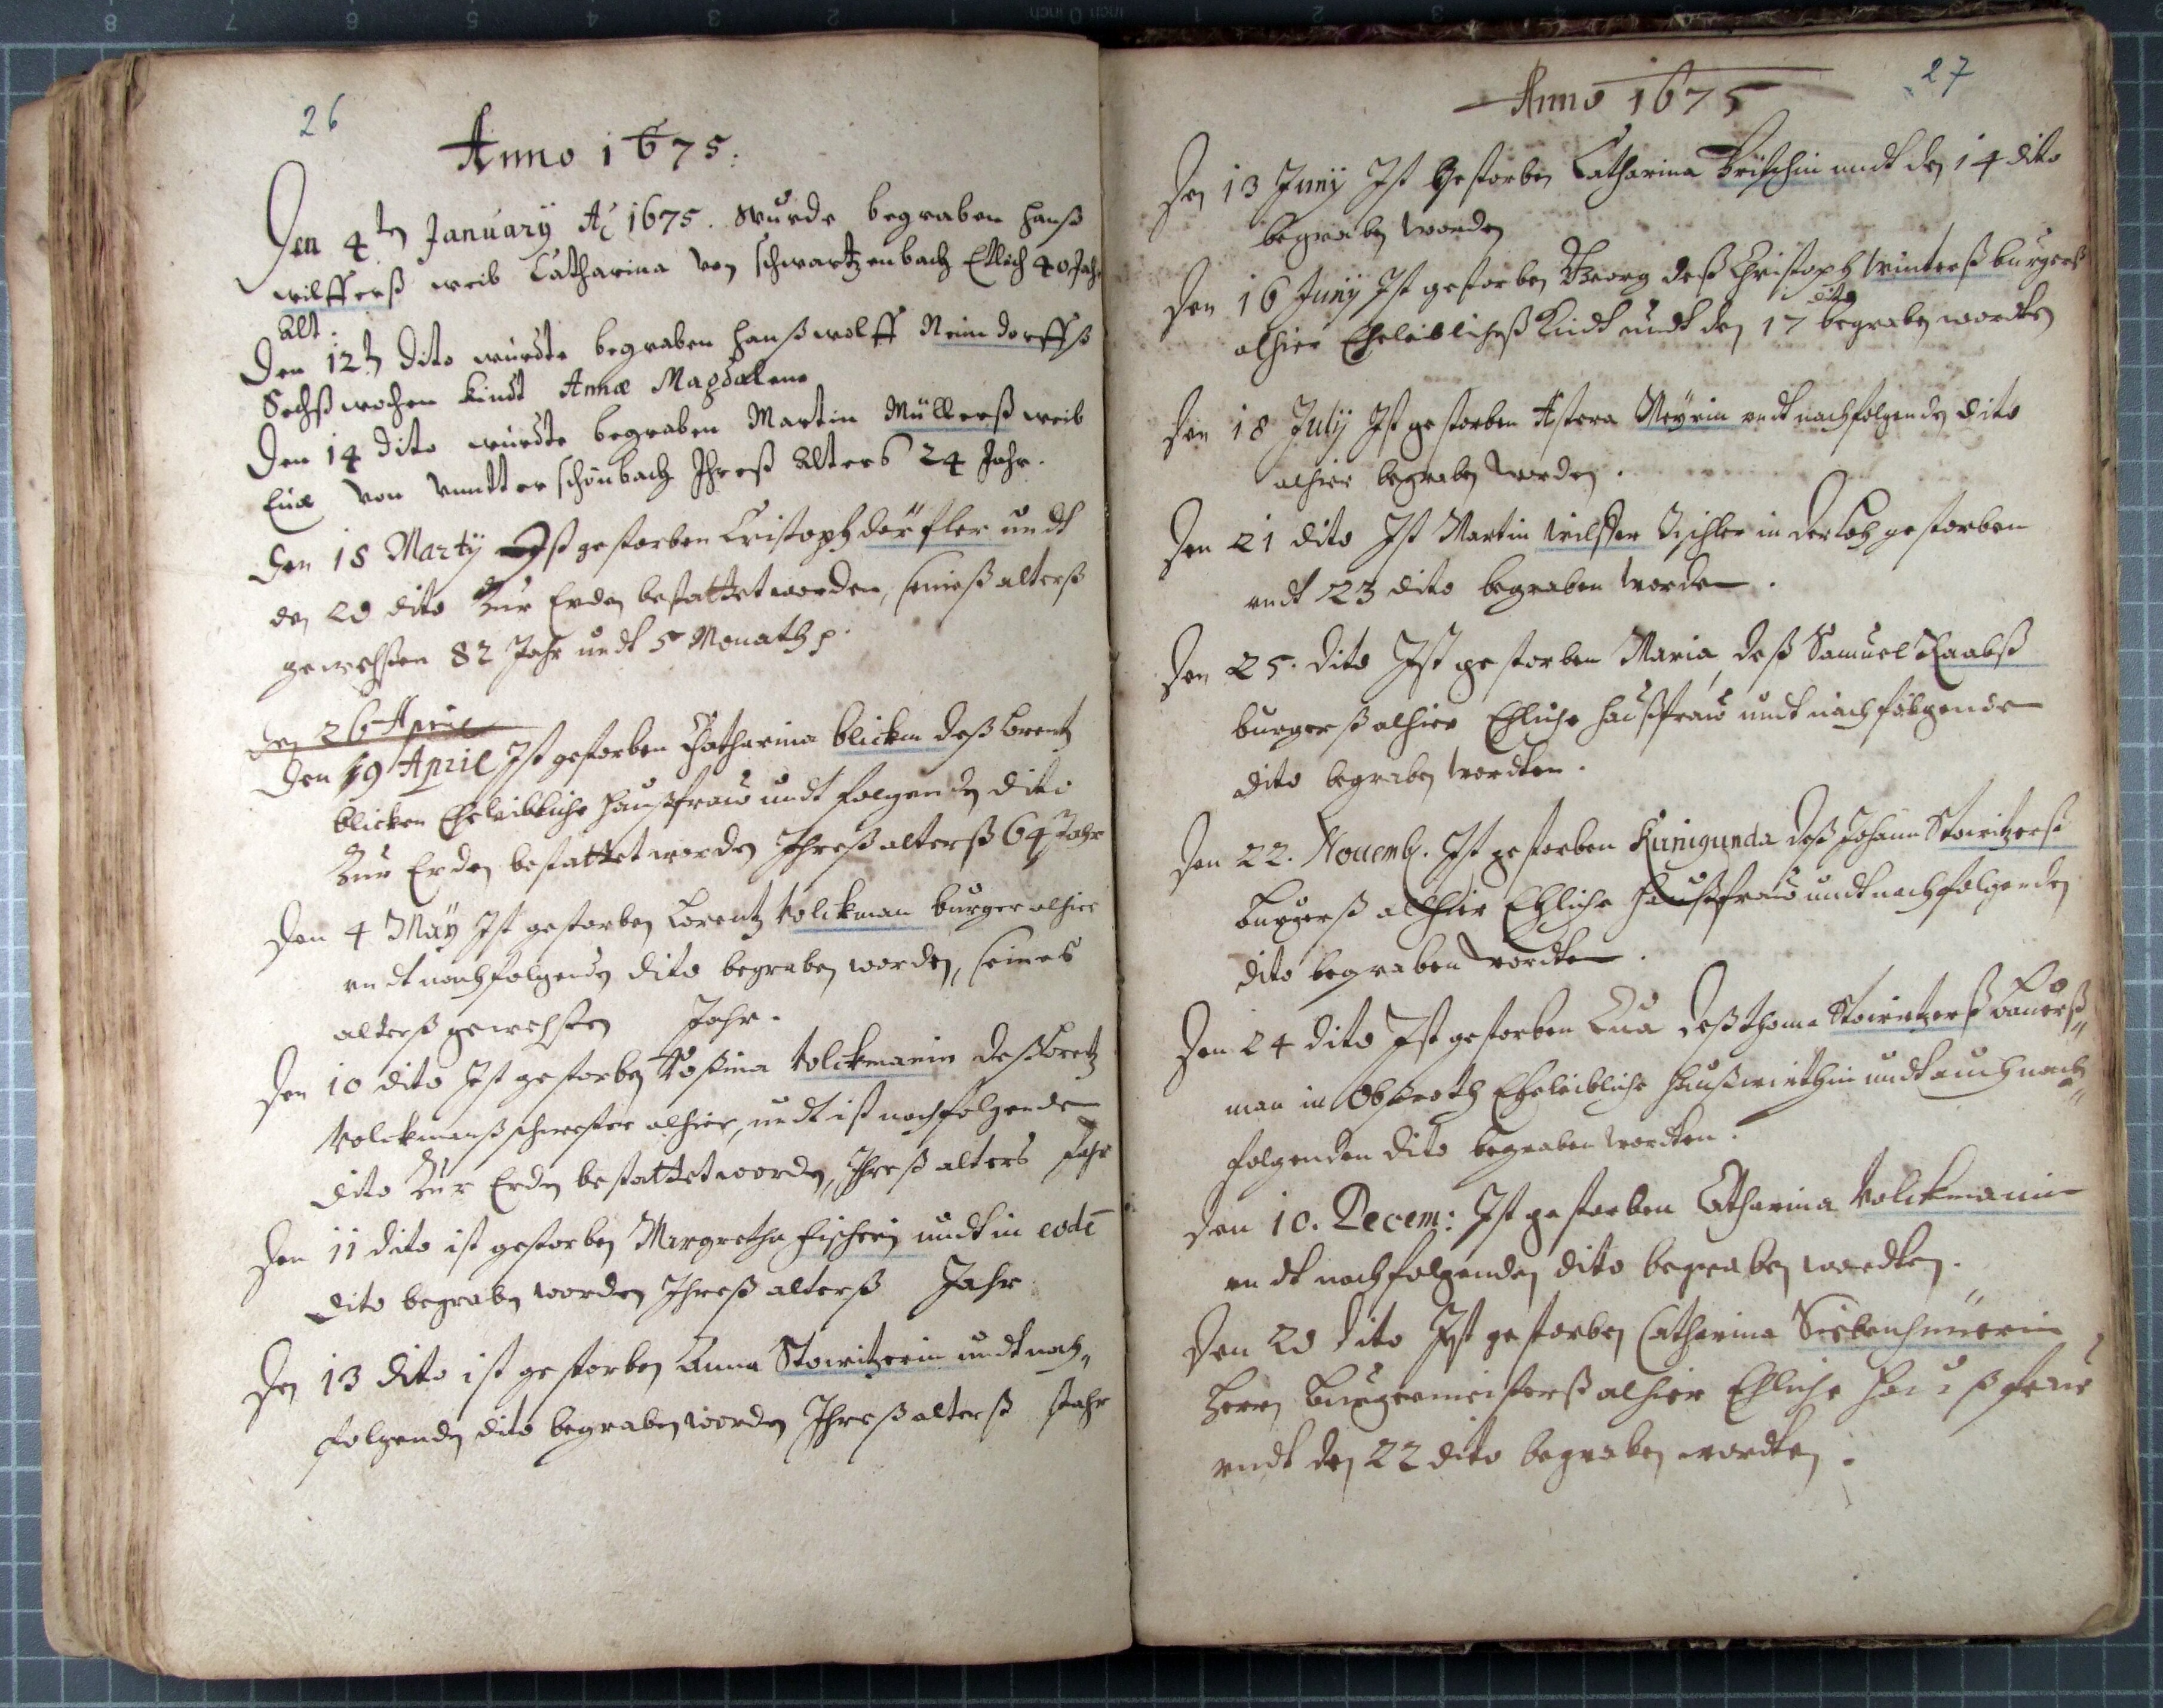 26
Anno 1675.
Den 4ten January Ao 1675. wurde begraben Hanß
wilfferß weib Catharina von schwartzenbach Etlich 40 Jahr
alt.
Den 12ten dito wurdte begraben Hanß wolff Neindorffß
Sechßwochen kindt Annae Magdalena
Den 14 dito wurdte begraben Martin Müllerß weib
Eua von vuntterschönbach Ihreß Alters 24 Jahr.
Den 18 Marty Ist gestorben Cristoph dörfler undt
den 20 dito Zur Erden bestattet worden, seineß alterß
gewessen 82 Jahr undt 5 Monath p.
den 26 April
Den 19 April Ist gestorben Chatharina blickin deß Lorentz
blicken Eheleibliche Haußfraw undt folgenden dito
Zur Erden bestattet worden Ihreß alterß 64 Jahr
Den 4 May Ist gestorben Lorentz Volckman burger alhier
undt nachfolgenden dito begraben worden, seines
alterß gewessen Jahr.
Den 10 dito Ist gestorben Roßina Volckmanin deß Loretz
Volckmanß schwester alhier, undt ist nachfolgenden
dito Zur Erden bestattet worden, Ihreß alters Jahr
Den 11 dito ist gestorben Margretha fischerin undt in eode
dito begraben worden Ihreß alterß Jahr
Den 13 dito ist gestorben Anna Stowitzerin undt nach„
folgenden dito begraben worden Ihreß alterß Jahr
27
Anno 1675
Den 13 Juny Ist Gestorben Catharina undt den 14 dito
begraben worden
Den 16 Juny Ist gestorben Georg deß Christoph Winterß burgerß
dito
alhier Eheleiblicheß Kindt undt den 17 begraben wordten
Den 18 July Ist gestorben Astera Meyrin undt nachfolgenden dito
alhier begraben worden.
Den 21 dito Ist Martin Wilffer Tischler in der Loh gestorben
undt 23 dito begraben worden.
Den 25. dito Ist gestorben Maria, deß Samuel Raabß
burgerß alhier Ehliche Haußfraw undt nachfolgenden
dito begraben wordten.
Den 22. Nouemb. Ist gestorben Kunigunda deß Johann Stowitzerß
Burgerß alhier Ehliche Haußfraw undt nachfolgenden
dito begraben wordten.
Den 24 dito Ist gestorben Eua deß thoma Stowitzerß Bauerß„
man in Oberoth Eheleibliche Haußwirthin undt auch nach„
folgenden dito begraben wordten.
Den 10. Decem: Ist gestorben Catharina Volckmanin
undt nachfolgenden dito begraben wordten.
Den 20 dito Ist gestorben Catharina Siebenhünerin
Herrn Burgermeisterß alhier Ehliche Haußfrau
undt den 22 dito begraben wordten.